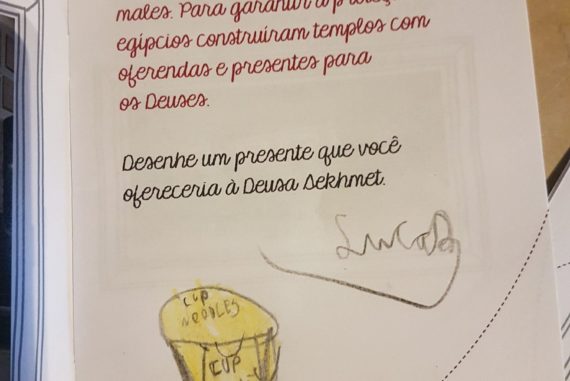 males. Para garantir a proteç
egípcios construíram templos com
oferendas e presentes para
os Deuses.
Desenhe um presente que você
ofereceria à Deusa Sekhmet.
Lucas
CUP
NOODLES
CUP